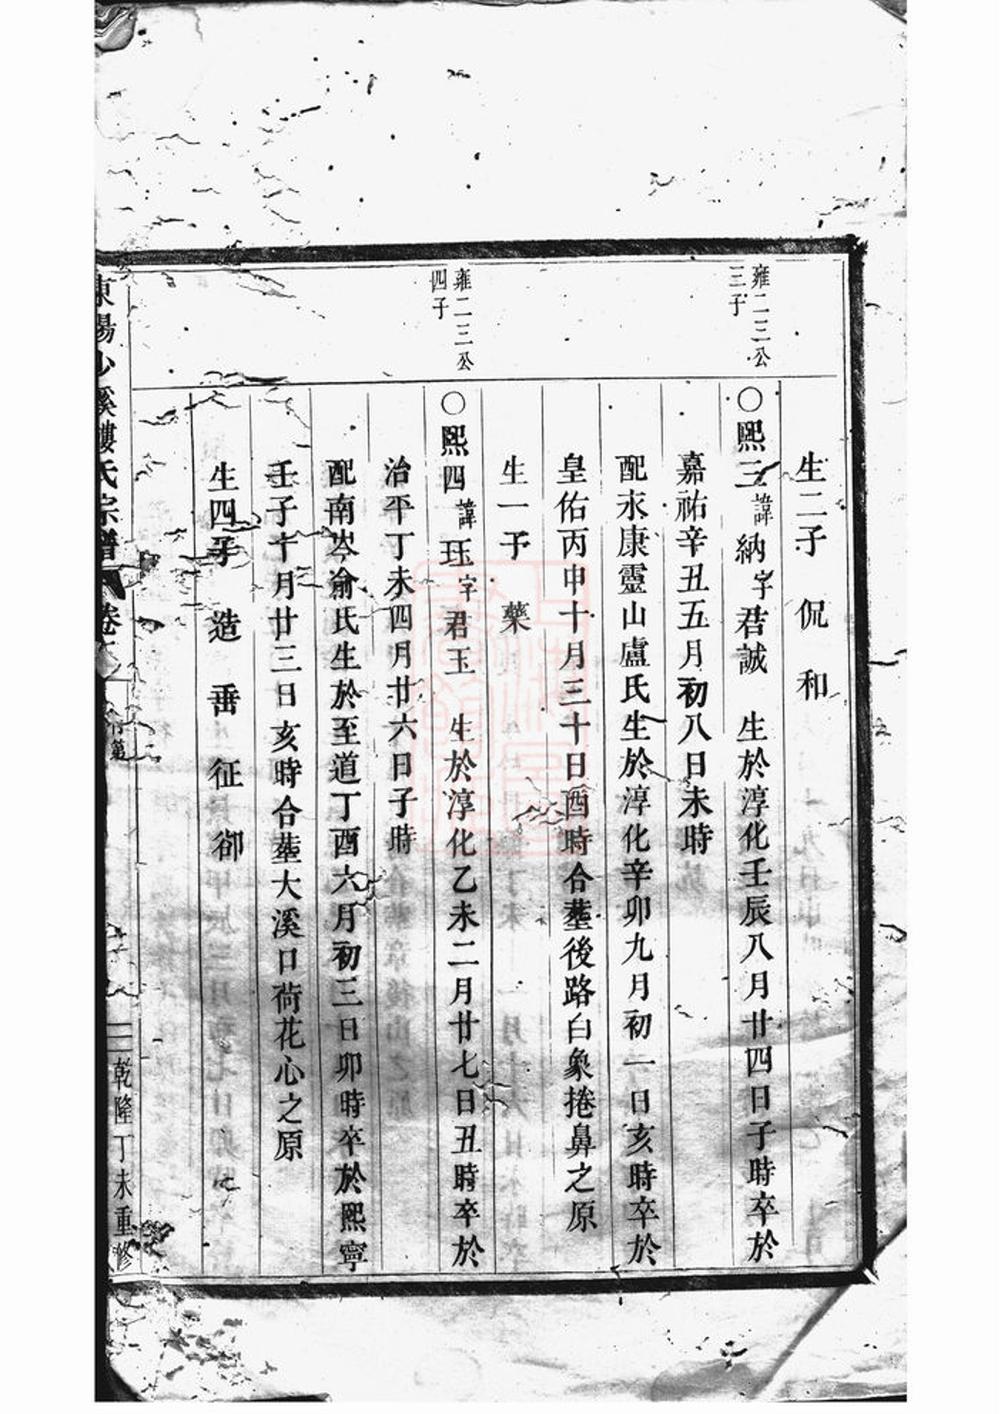 生二子 侃 和
雍二三公
三子
○熙三諱納字君誠 生於淳化壬辰八月廿四日子時卒於
嘉祐辛丑五月初八日未時
配永康靈山盧氏生於淳化辛卯九月初一日亥時卒於
皇佑丙申十月三十日酉時合塟後路白象捲鼻之原
生一子 藥
雍二三公
四子
○熙四諱玨字君玉 生於淳化乙未二月廿七日丑時卒於
治平丁未四月廿六日子時
配南岑俞氏生於至道丁酉六月初三日卯時卒於熙寧
壬子十月廿三日亥時合塟大溪口荷花心之原
生四子 造 垂 征 卻
東陽沙溪樓氏宗譜 卷 行第 乾隆丁未重修